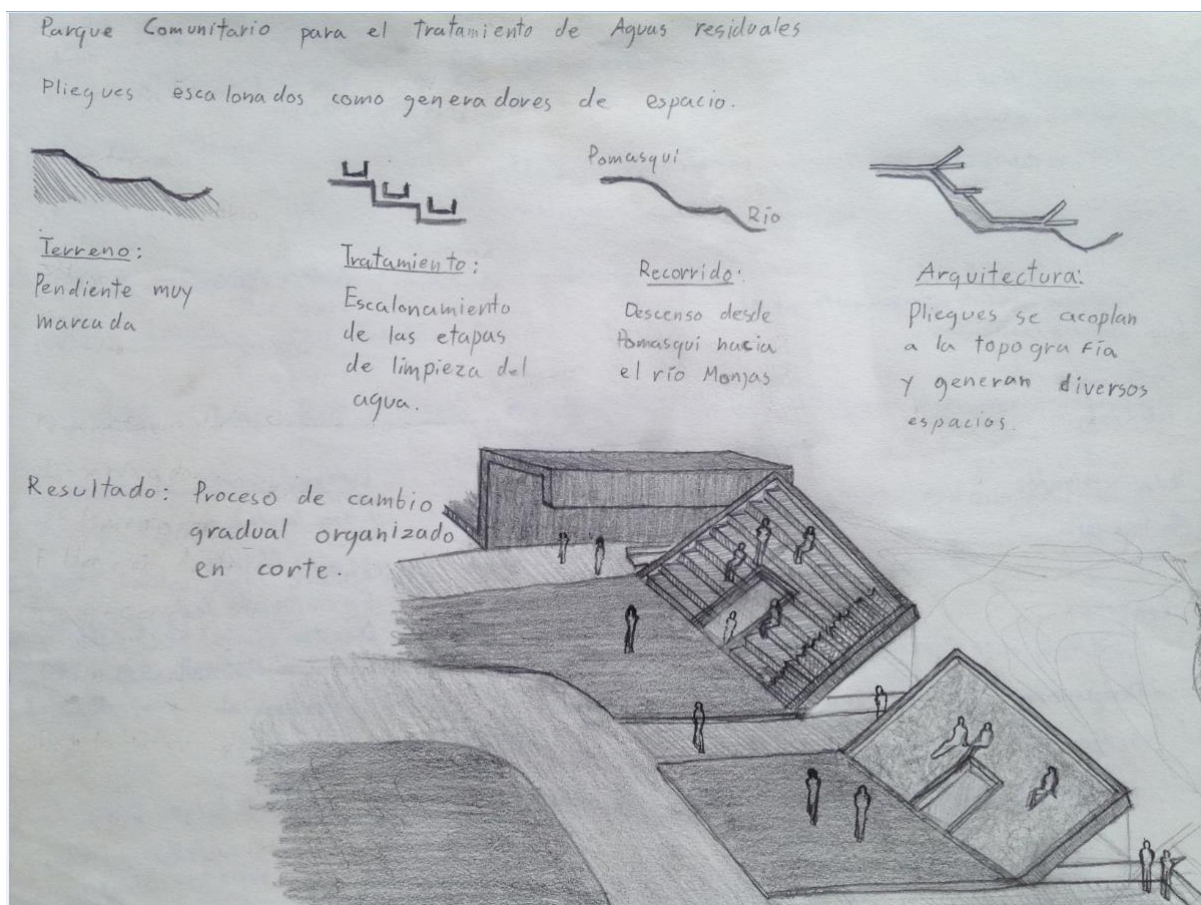 Parque Comunitario para el Tratamiento de Aguas residuales
Pliegues escalonados como generadores de espacio.
Terreno:
Pendiente muy
marcada
Tratamiento:
Escalonamiento
de las etapas
de limpieza del
agua.
Pomasqui
Río
Recorrido:
Descenso desde
Pomasqui hacia
el río Monjas
Arquitectura:
Pliegues se acoplan
a la topografía
y generan diversos
espacios.
Resultado: Proceso de cambio
gradual organizado
en corte.